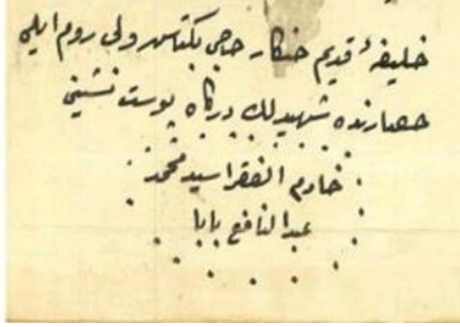 خليفهٔ قديم خنكار حاجى بكتاش ولى روم ايلى
حصارنده شهيدلك دركاه پوست نشينى
خادم الفقرا سيد محمد
عبد النافع بابا